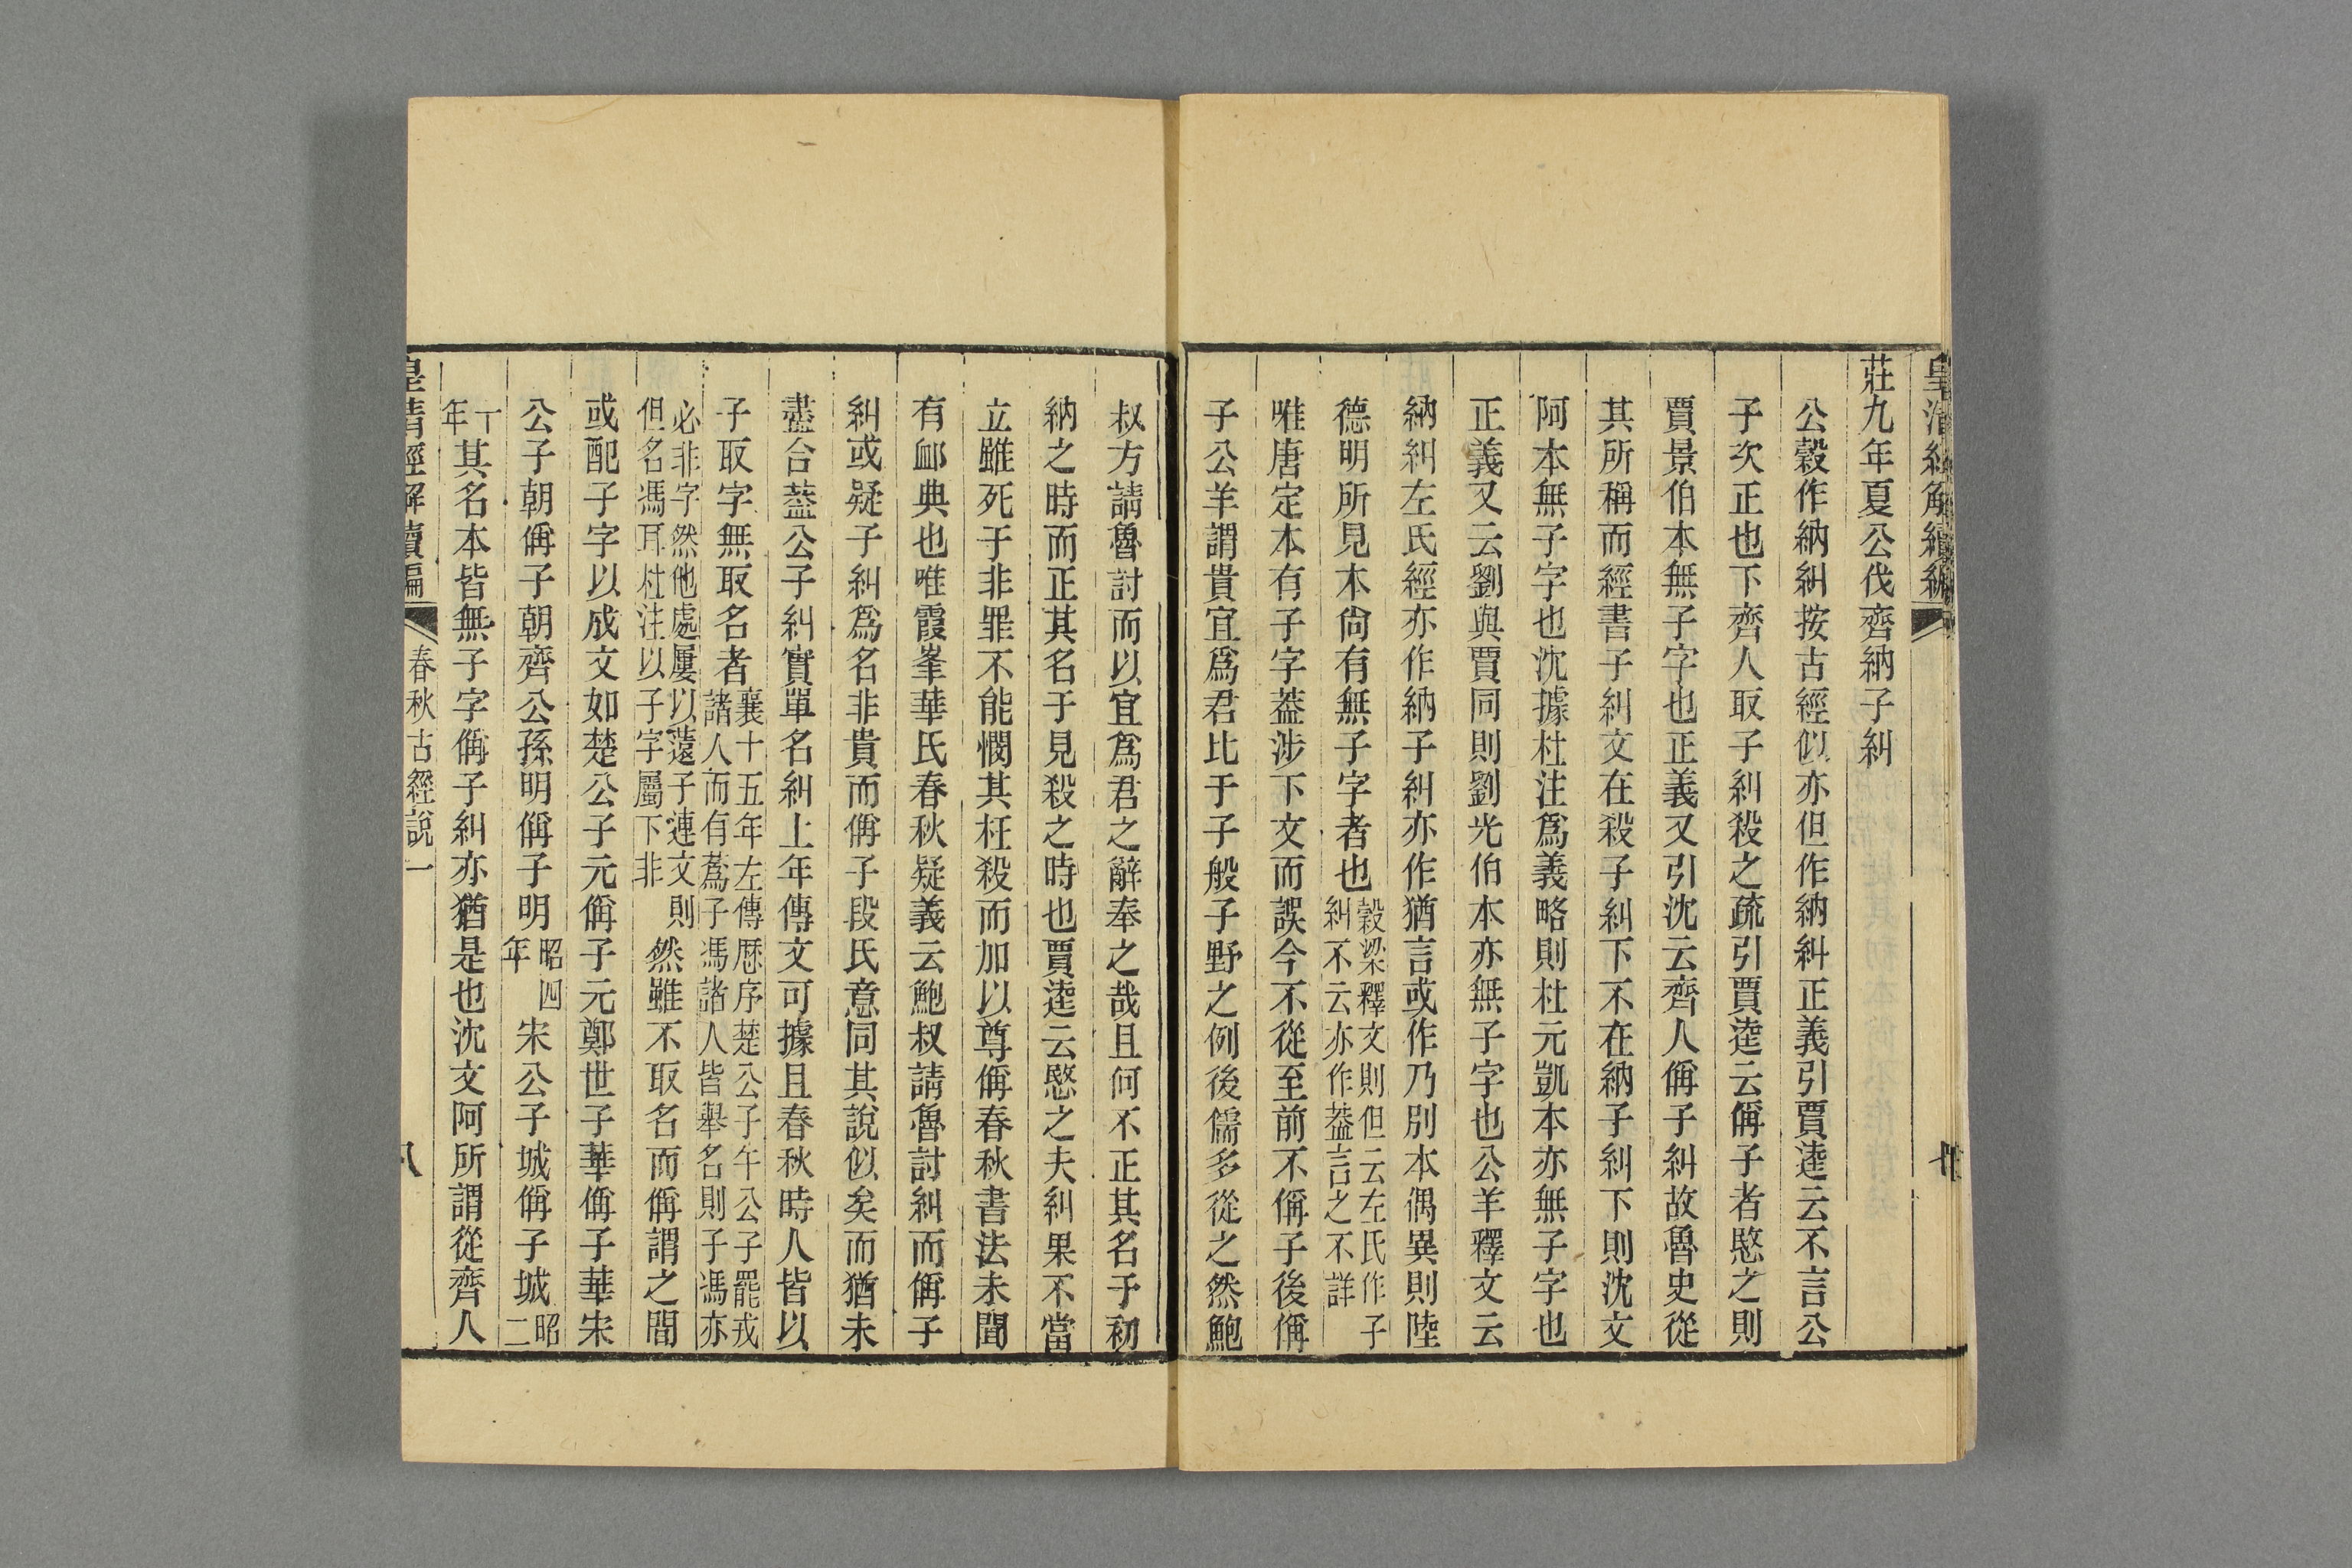 皇清經解續編
莊九年夏公伐齊納子糾
公穀作納糾按古經似亦但作納糾正義引賈逵云不言公
子次正也下齊人取子糾殺之疏引賈逵云偁子者愍之則
賈景伯本無子字也正義又引沈云齊人偁子糾故魯史從
其所稱而經書子糾文在殺子糾下不在納子糾下則沈文
阿本無子字也沈據杜注爲義略則杜元凱本亦無子字也
正義又云劉與賈同則劉光伯本亦無子字也公羊釋文云
納糾左氏經亦作納子糾亦作猶言或作乃別本偶異則陸
德明所見本尙有無子字者也穀梁釋文則但云左氏作子
糾不云亦作葢言之不詳
唯唐定本有子字葢涉下文而誤今不從至前不偁子後偁
子公羊謂貴宜爲君比于子般子野之例後儒多從之然鮑
叔方請魯討而以宜爲君之辭奉之哉且何不正其名于初
納之時而正其名于見殺之時也賈逵云愍之夫糾果不當
立雖死于非罪不能憫其枉殺而加以尊偁春秋書法未聞
有卹典也唯霞峯華氏春秋疑義云鮑叔請魯討糾而偁子
糾或疑子糾爲名非貴而偁子段氏意同其說似矣而猶未
盡合葢公子糾實單名糾上年傳文可據且春秋時人皆以
子取字無取名者襄十五年左傳歷序楚公子午公子罷戎
諸人而有蔿子馮諸人皆舉名則子馮亦
必非字然他處屢以薳子連文則
但名馮耳杜注以子字屬下非
然雖不取名而偁謂之間
或配子字以成文如楚公子元偁子元鄭世子華偁子華宋
公子朝偁子朝齊公孫明偁子明昭四
年
宋公子城偁子城昭二
十
年
其名本皆無子字偁子糾亦猶是也沈文阿所謂從齊人
皇清經解續編
春秋古經說一
八